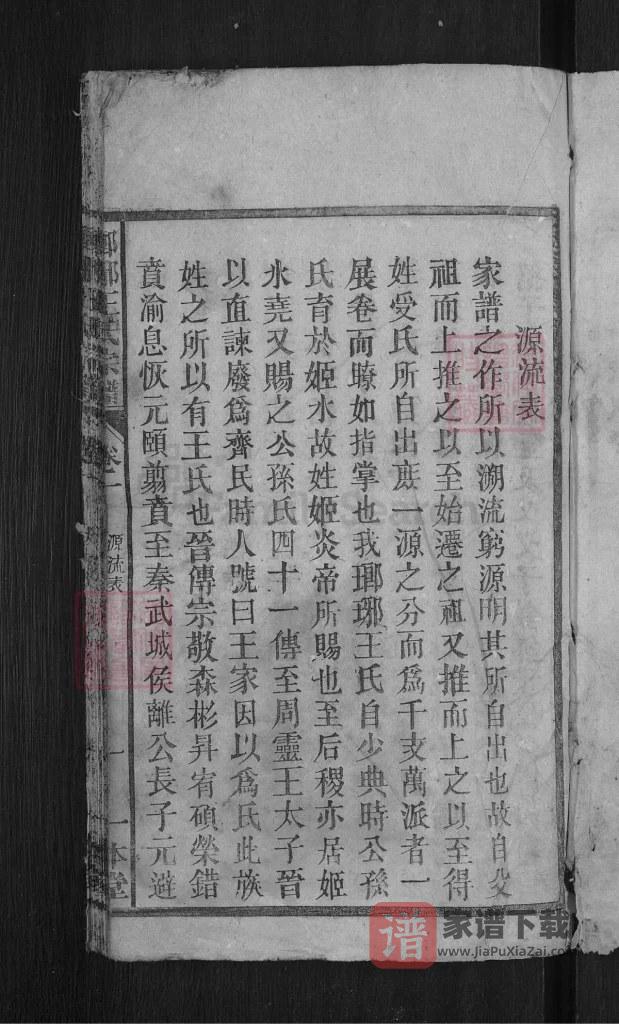 源流表
家譜之作所以溯流窮源明其所自出也故自父
祖而上推之以至始遷之祖又推而上之以至得
姓受氏所自出庶一源之分而爲千支萬派者一
展卷而瞭如指掌也我瑯琊王氏自少典時公孫
氏育於姬水故姓姬炎帝所賜也至后稷亦居姬
水堯又賜之公孫氏四十一傳至周靈王太子晉
以直諫廢爲齊民時人號曰王家因以爲氏此族
姓之所以有王氏也晉傳宗敬森彬昇宥碩榮錯
賁渝息恢元頤翦賁至秦武城侯離公長子元避
王氏宗譜
卷一
源流表
一
一本堂
谱 家谱下载
www.JiaPuXiaZai.com